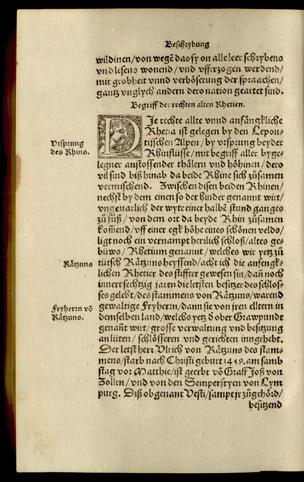 Beschrybung
wildinen/von wegē das sy on alle leer schrybens
vnd lesens wonend/vnd vfferzogen werdend/
mit grobheit vnnd verböserung der spraachen/
gantz vnglych andern dero nation geartet sind.
Begriff der rechten alten Rhetien.
Die rechte alte vnnd anfängkliche
Rhetia ist gelegen by den Lepon-
tischen Alpen/by vrsprung beyder
Rhynflüsse/mit begriff aller byge-
legner anstossender thälern vnd höhinen/dero
vil sind biß hinab da beyde Rhine sich züsamen
vermischend. Zwischen disen beiden Rhinen/
nechst by dem einen so der hinder genannt wirt/
vngenarlich der wyte einer halbē stund ganges
zü füß/von dem ort da beyde Rhin züsamen
komend/vff einer egk höhe eines schönen velds/
ligt noch ein vernampt herrlich schloß/altes ge-
büws/Rhetium genant/welches wir yetz zü
tütsch Räzüns heyssend/acht ich die anfengk-
lichen Rhetier des stiffter gewesen sin/dañ noch
innert sechtzig jaren die letsten besitzer des schlos-
ses gelebt/des stammens von Räzüns/warend
gewaltige Fryherrn/dann sie von jren eltern in
demselben land/welchs yetz ō ober Grawpundt
genañt wirt/grosse verwaltung vnd besitzung
an lüten/schlössern vnd gerichten inngehebt.
Der letst herr Vlrich von Räzuns des stam-
mens/starb nach Christi geburt 1459. am sams-
tag vor Matthie/ist geerbt vō Graff Joß von
Zollrn/vnd von den Semperfryen von Lym
purg. Diß obgenant Vesti/sampt jr zügehörd/
besitzend
Vrsprung
des Rhins.
Räzüns
Fryherrn vō
Räzuns.